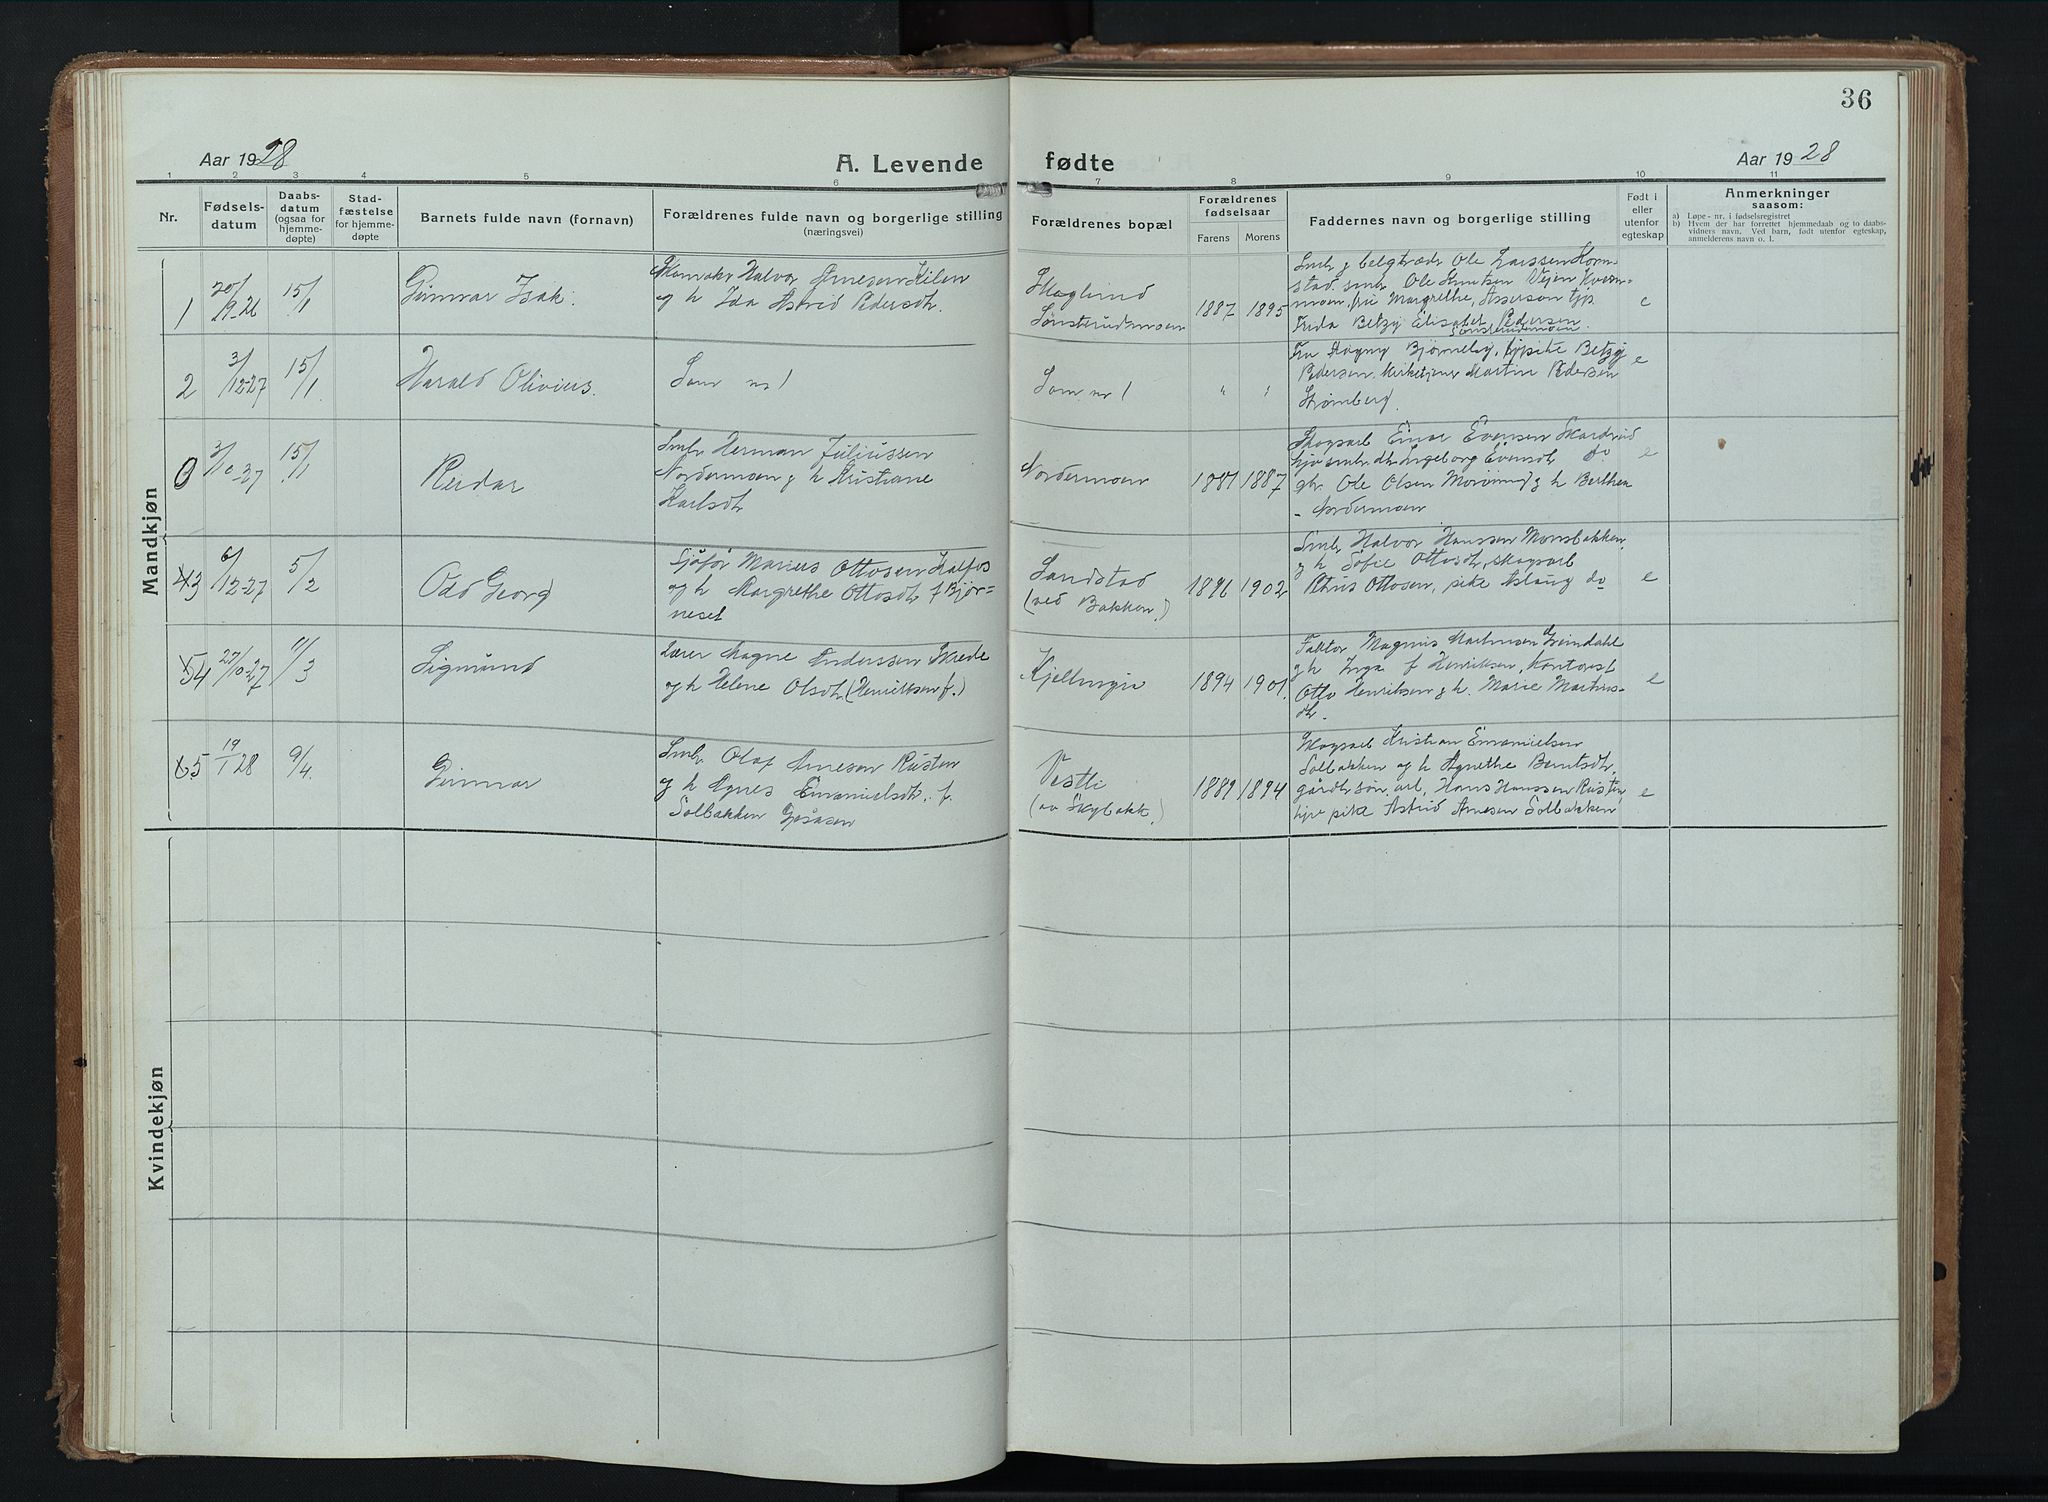 36
Aar 1928
A. Levende fødte
Aar 1928
1 2 3 4 5 6 7 8 9 10 11
Nr.
Fødsels-
datum
Daabs-
datum
(ogsaa for
hjemme-
døpte)
Stad-
fæstelse
for hjemme-
døpte
Barnets fulde navn (fornavn)
Forældrenes fulde navn og borgerlige stilling
(næringsvei)
Forældrenes bopæl
Forældrenes
fødselsaar
Farens Morens
Faddernes navn og borgerlige stilling
Født i
eller
utenfor
egteskap
Anmerkninger
saasom:
a) Løpe-nr. i fødselsregistret
b) Hvem der har forrettet hjemmedaab og to daabs-
vidners navn. Ved barn, født utenfor egteskap,
anmelderens navn o. l.
Mandkjøn
1
20/9-26
15/1
Gunnar Isak
Skomaker Halvor Arnesen Kilen
og h Ida Astrid Pedersdtr.
Skoglund
Sønsterudmoen
1887 1895
Smbr g belgtræder Ole Larssen Korn-
stad. smbr Ole Knutsen Vejen Kvern-
moen, fru Margrethe, Asserson typ.
Frida Betzy Elisabet Pedersen
Sønsterudmoen
e
2
3/12-27
15/1
Harald Olivius.
Som nr 1
Som nr 1
" "
Fru Magny Bjørneby, Betzy
Pedersen, Kirketjener Martin Pedersen
Strømberg.
e
3/10-27
15/1
Reidar
Smbr Herman Juliussen
Nordermoen g h Kristiane
Karlsdtr
Nordermoen
1887 1887
Skogsarb Einar Evensen Skardrud
Ingeborg Evensdtr do
gbr. Ole Olsen g h Berthea
- Nordermoen
e
43
6/12-27
5/2
Odd Georg
Sjåfør Marius Ottosen Kalfos
og h Margrethe Ottosdtr f Bjør-
neset
Sandstad
(ved Bakken)
1896 1902
Smbr Halvor Hanssen Monsbakken
g h Sofie Ottosdtr, skogsarb
Petrus Ottosen, pike Aslaug do
e
54
27/10-27
11/3
Sigmund
Lærer Magne Anderssen Skrede
og h Helene Olsdtr (Henriksen f.)
Kjellmyra
1894 1901.
Faktor Magnus Martinsen Grindahl
g h Inga f Henriksen, Kontorist
Otto Henriksen g h. Marie Martins-
dtr.
e
65
19/1 28
9/4.
Gunnar
Smbr Olaf Arnesen Rusten
g h Agnes Emanielsdtr. f.
Solbakken Gråsen
Vestli
(av Skybakk.)
1889 1894
Skogsarb Kristian Emanielsen
Solbakken og h Agnethe Berntsdtr,
gårdbrsøn. arb, Hans Hanssen Rusten,
hjv pike Astrid Arnesen Solbakken
e
Kvindekjøn